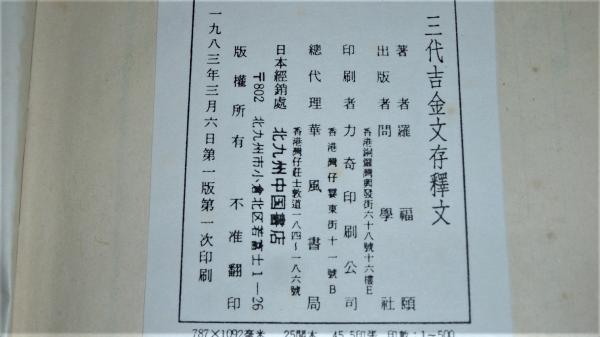 三代吉金文存釋文
著者 羅福頤
出版者 問學社
香港銅鑼灣興發街六十八號十六樓E
印刷者 力奇印刷公司
香港灣仔霎東街十一號B
總代理 華風書局
香港灣仔莊士敦道一八四～一八六號
日本經銷處 北九州中国書店
〒802 北九州市小倉北区若富士1－26
版權所有 不准翻印
一九八三年三月六日第一版第一次印刷
787×1092毫米 25開本 45.5印張 印數：1～500